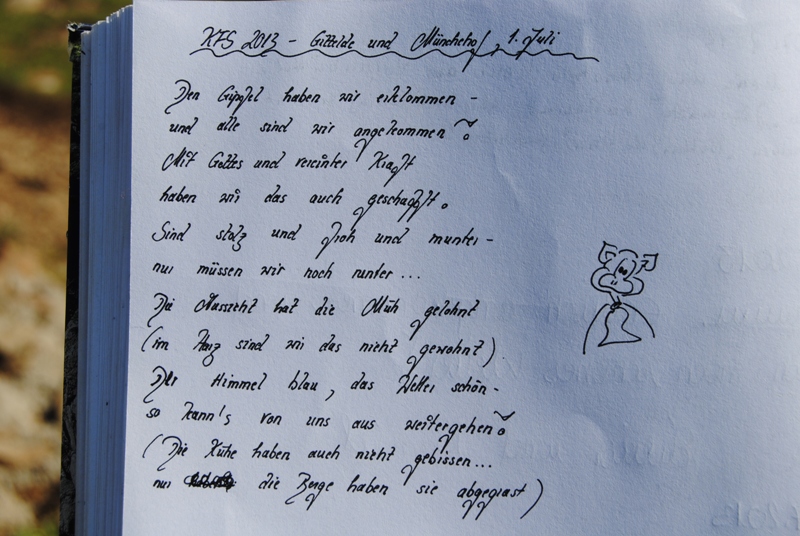 KFS 2013 - Gittelde und Münchehof, 1. Juli
Den Gipfel haben wir erklommen -
und alle sind wir angekommen!
Mit Gottes und vereinter Kraft
haben wir das auch geschafft.
Sind stolz und froh und munter -
nur müssen wir noch runter...
Die Aussicht hat die Müh gelohnt
(im Harz sind wir das nicht gewohnt)
Der Himmel blau, das Wetter schön -
so kann's von uns aus weitergehen!
(Die Kühe haben auch nicht gebissen...
nur die Berge haben sie abgegrast)